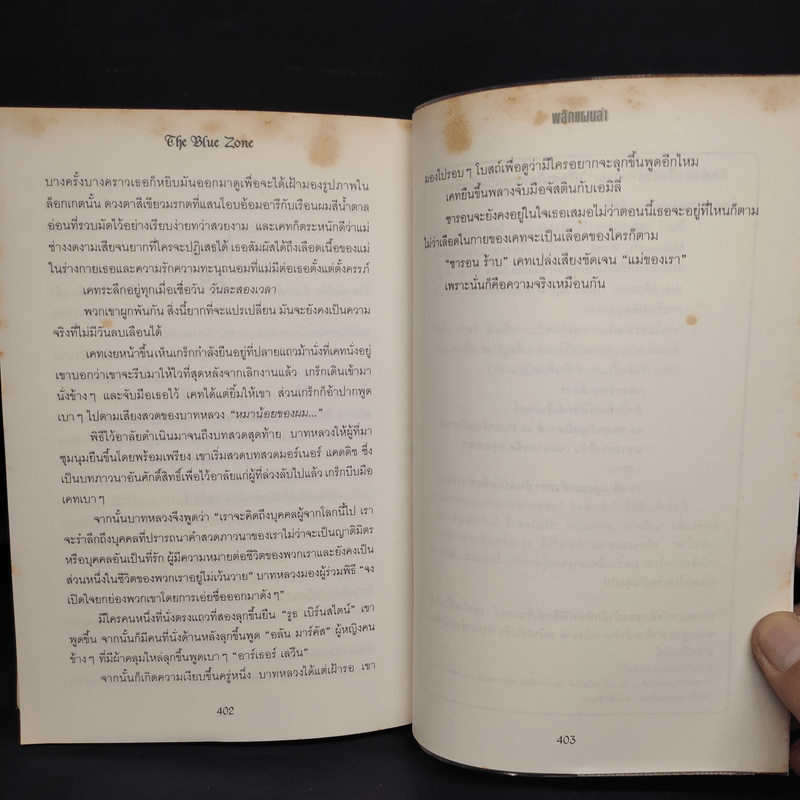 The Blue Zone
บางครั้งบางคราวเธอก็หยิบมันออกมาดูเพื่อจะได้เฝ้ามองรูปภาพใน
ล็อกเกตนั้น ดวงตาสีเขียวมรกตที่แสนโอบอ้อมอารีกับเรือนผมสีน้ำตาล
อ่อนที่รวบมัดไว้อย่างเรียบง่ายทว่าสวยงาม และเคทก็ตระหนักดีว่าแม่
ช่างงดงามเสียจนยากที่ใครจะปฏิเสธได้ เธอสัมผัสได้ถึงเลือดเนื้อของแม่
ในร่างกายเธอและความรักความทะนุถนอมที่แม่มีต่อเธอตั้งแต่ตั้งครรภ์
เคทระลึกอยู่ทุกเมื่อเชื่อวัน วันละสองเวลา
พวกเขาผูกพันกัน สิ่งนี้ยากที่จะแปรเปลี่ยน มันจะยังคงเป็นความ
จริงที่ไม่มีวันลบเลือนได้
เคทเงยหน้าขึ้นเห็นเกร็กกำลังยืนอยู่ที่ปลายแถวม้านั่งที่เคทนั่งอยู่
เขาบอกว่าเขาจะรีบมาให้ไวที่สุดหลังจากเลิกงานแล้ว เกร็กเดินเข้ามา
นั่งข้างๆ และจับมือเธอไว้ เคทได้แต่ยิ้มให้เขา ส่วนเกร็กก็อ้าปากพูด
เบาๆ ไปตามเสียงสวดของบาทหลวง “หมาน้อยของผม...”
พิธีไว้อาลัยดำเนินมาจนถึงบทสวดสุดท้าย บาทหลวงให้ผู้ที่มา
ชุมนุมยืนขึ้นโดยพร้อมเพรียง เขาเริ่มสวดบทสวดมอร์เนอร์ แคดดิช ซึ่ง
เป็นบทภาวนาอันศักดิ์สิทธิ์เพื่อไว้อาลัยแก่ผู้ที่ล่วงลับไปแล้ว เกร็กบีบมือ
เคทเบาๆ
จากนั้นบาทหลวงจึงพูดว่า “เราจะคิดถึงบุคคลผู้จากโลกนี้ไป เรา
จะรำลึกถึงบุคคลที่ปรารถนาคำสวดภาวนาของเราไม่ว่าจะเป็นญาติมิตร
หรือบุคคลอันเป็นที่รัก ผู้มีความหมายต่อชีวิตของพวกเราและยังคงเป็น
ส่วนหนึ่งในชีวิตของพวกเราอยู่ไม่เว้นวาย” บาทหลวงมองผู้ร่วมพิธี “จง
เปิดใจยกย่องพวกเขาโดยการเอ่ยชื่อออกมาดังๆ”
มีใครคนหนึ่งที่นั่งตรงแถวที่สองลุกขึ้นยืน “รูธ เบิร์นสไตน์” เขา
พูดขึ้น จากนั้นก็มีคนที่นั่งด้านหลังลุกขึ้นพูด “อลัน มาร์คัส” ผู้หญิงคน
ข้างๆ ที่มีผ้าคลุมไหล่ลุกขึ้นพูดเบาๆ “อาร์เธอร์ เลวีน”
จากนั้นก็เกิดความเงียบขึ้นครู่หนึ่ง บาทหลวงได้แต่เฝ้ารอ เขา
402
พลิกแผนล่า
มองไปรอบๆ โบสถ์เพื่อดูว่ามีใครอยากจะลุกขึ้นพูดอีกไหม
เคทยืนขึ้นพลางจับมือจัสตินกับเอมิลี่
ชารอนจะยังคงอยู่ในใจเธอเสมอไม่ว่าตอนนี้เธอจะอยู่ที่ไหนก็ตาม
ไม่ว่าเลือดในกายของเคทจะเป็นเลือดของใครก็ตาม
“ชารอน ร้าบ” เคทเปล่งเสียงชัดเจน “แม่ของเรา”
เพราะนั่นก็คือความจริงเหมือนกัน
403